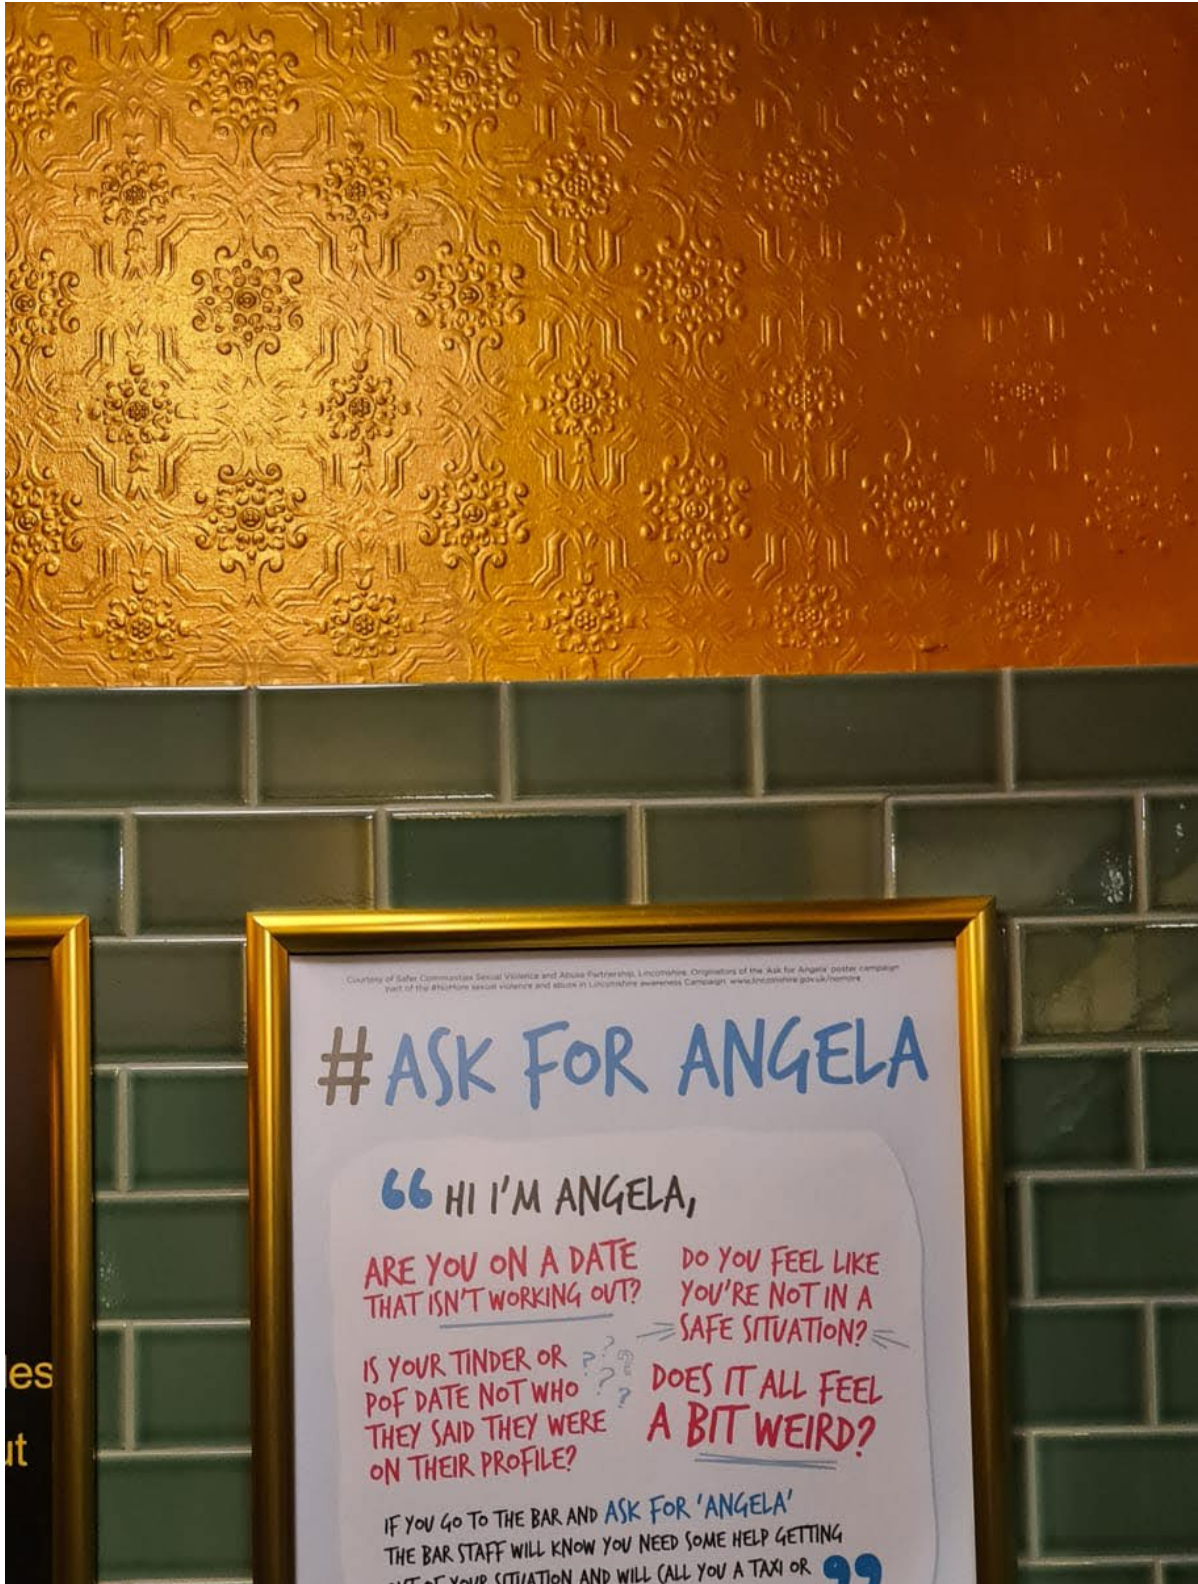 Courtesy of Safer Communities Sexual Violence and Abuse Partnership, Lincolnshire. Originators of the 'Ask for Angela' poster campaign
part of the #NoMore sexual violence and abuse in Lincolnshire awareness Campaign. www.lincolnshire.gov.uk/nomore
#ASK FOR ANGELA
“ HI I'M ANGELA,
ARE YOU ON A DATE
THAT ISN'T WORKING OUT?
DO YOU FEEL LIKE
YOU'RE NOT IN A
SAFE SITUATION?
IS YOUR TINDER OR
POF DATE NOT WHO
THEY SAID THEY WERE
ON THEIR PROFILE?
????
?
DOES IT ALL FEEL
A BIT WEIRD?
IF YOU GO TO THE BAR AND ASK FOR 'ANGELA'
THE BAR STAFF WILL KNOW YOU NEED SOME HELP GETTING
OUT OF YOUR SITUATION AND WILL CALL YOU A TAXI OR ”
les
ut